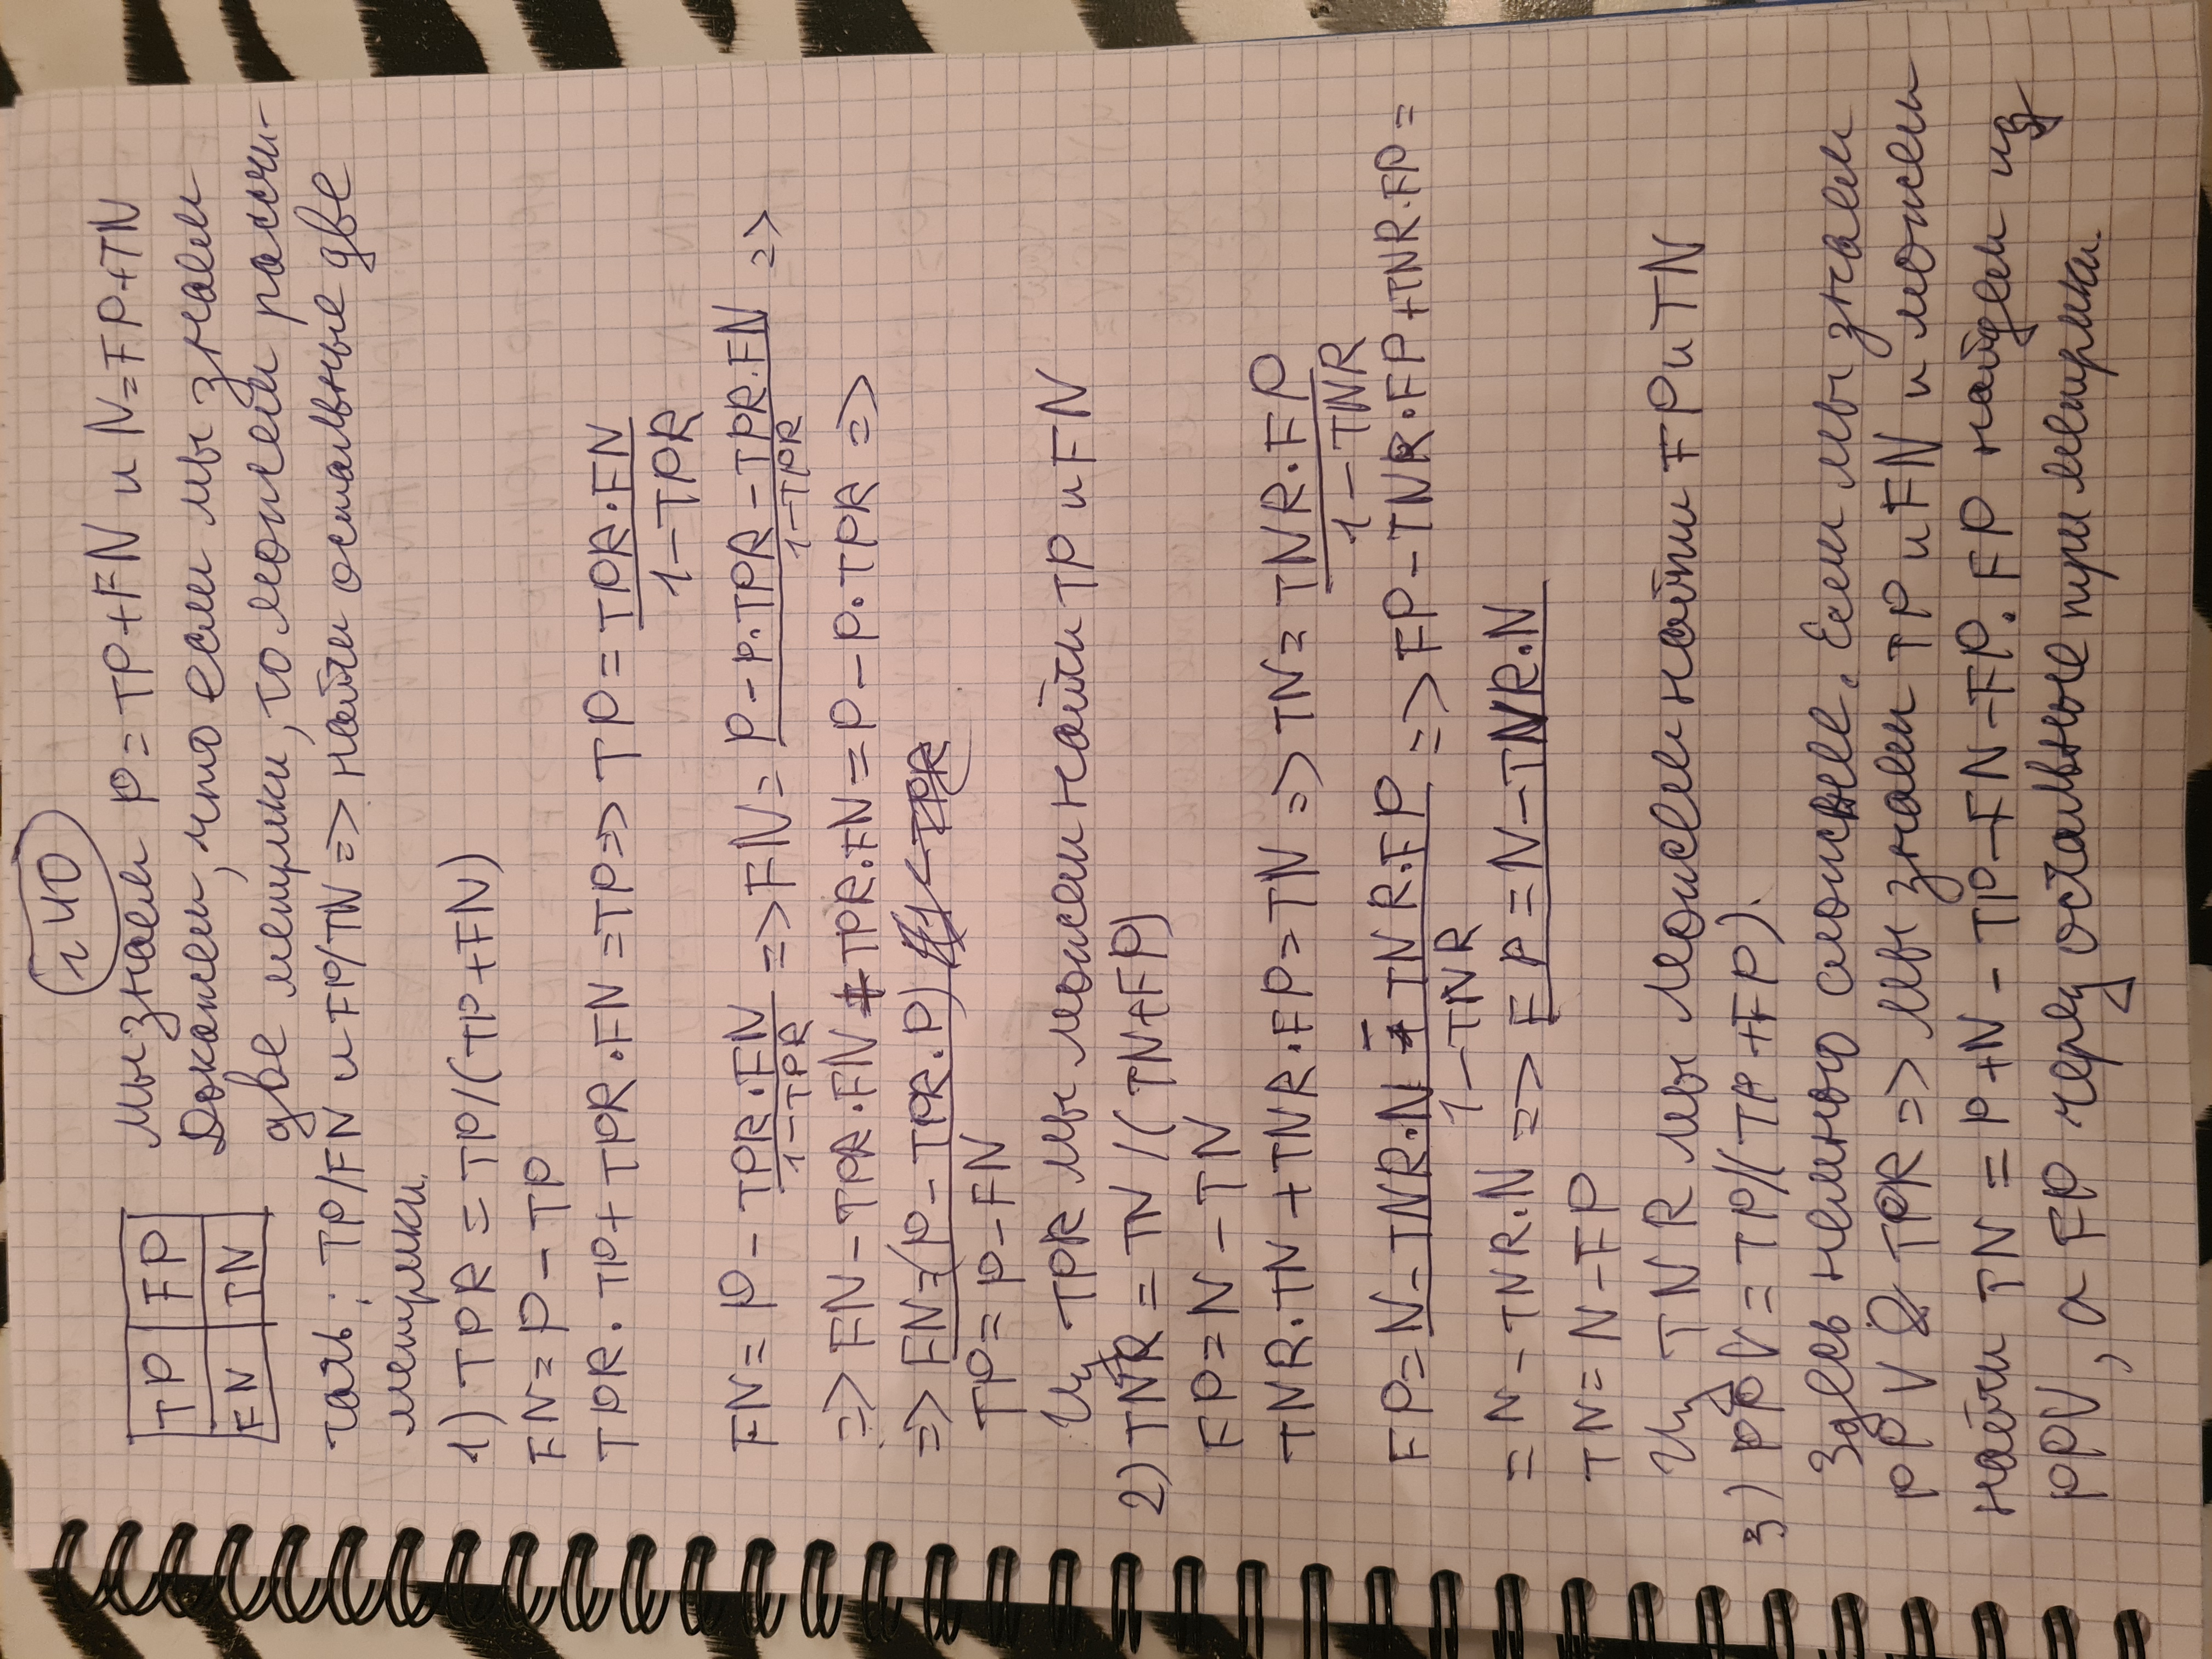 г 40
TP FP
FN TN
мы знаем P = TP+FN и N=FP+TN
Докажем, что если мы знаем
две метрики, то можем рассчи-
тать: TP/FN и FP/TN => найти остальные две
метрики.
1) TPR = TP/(TP+FN)
FN = P - TP
TPR·TP + TPR·FN = TP => TP = TPR·FN / 1-TPR
FN = P - TPR·FN / 1-TPR => FN = P - P·TPR - TPR·FN / 1-TPR =>
=> FN - TPR·FN + TPR·FN = P - P·TPR =>
=> FN = (P - TPR·P)
TP = P - FN
Из TPR мы можем найти TP и FN
2) TNR = TN /(TN+FP)
FP = N - TN
TNR·TN + TNR·FP = TN => TN = TNR·FP / 1-TNR
FP = N - TNR·N - TNR·FP / 1-TNR => FP - TNR·FP + TNR·FP =
= N - TNR·N => FP = N - TNR·N
TN = N - FP
Из TNR мы можем найти FP и TN
3) PPV = TP/(TP+FP).
Здесь немного сложнее. Если мы знаем
PPV & TPR => мы знаем TP и FN и можем
найти TN = P+N - TP - FN - FP. FP найдем из
PPV, а FP через остальные три метрики.